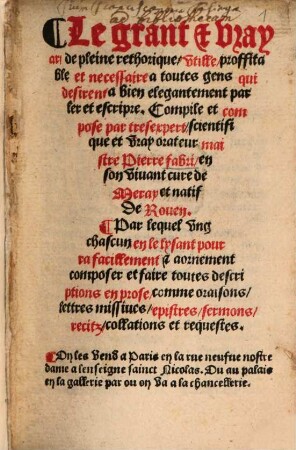 ¶Le grant & vray
art de pleine rethorique/vtille/proffita
ble et necessaire a toutes gens qui
desirent a bien elegantement par
ler et escripre. Compile et com
pose par tresexpert/scientifi
que et vray orateur mai
stre Pierre fabri/en
son viuant cure de
Meray et natif
De Rouen.
¶Par lequel vng
chascun en le lysant pour
ra facillement & aornement
composer et faire toutes descri
ptions en prose/comme oraisons/
lettres missiues/epistres/sermons/
recitz/collations et requestes.
¶On les vend a Paris en la rue neufue nostre
dame a lenseigne sainct Nicolas. Ou au palais
en la gallerie par ou on va a la chancellerie.